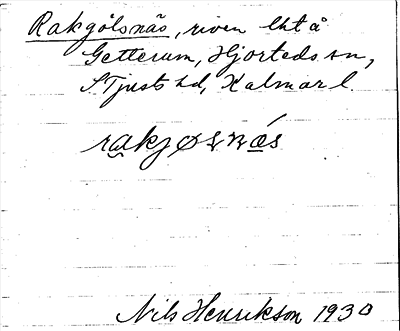 Rakgölsnäs, riven lht å
Getterum, Hjorteds sn,
S Tjusts hd, Kalmar l.
rakjøsnæs
Nils Henrikson 1930